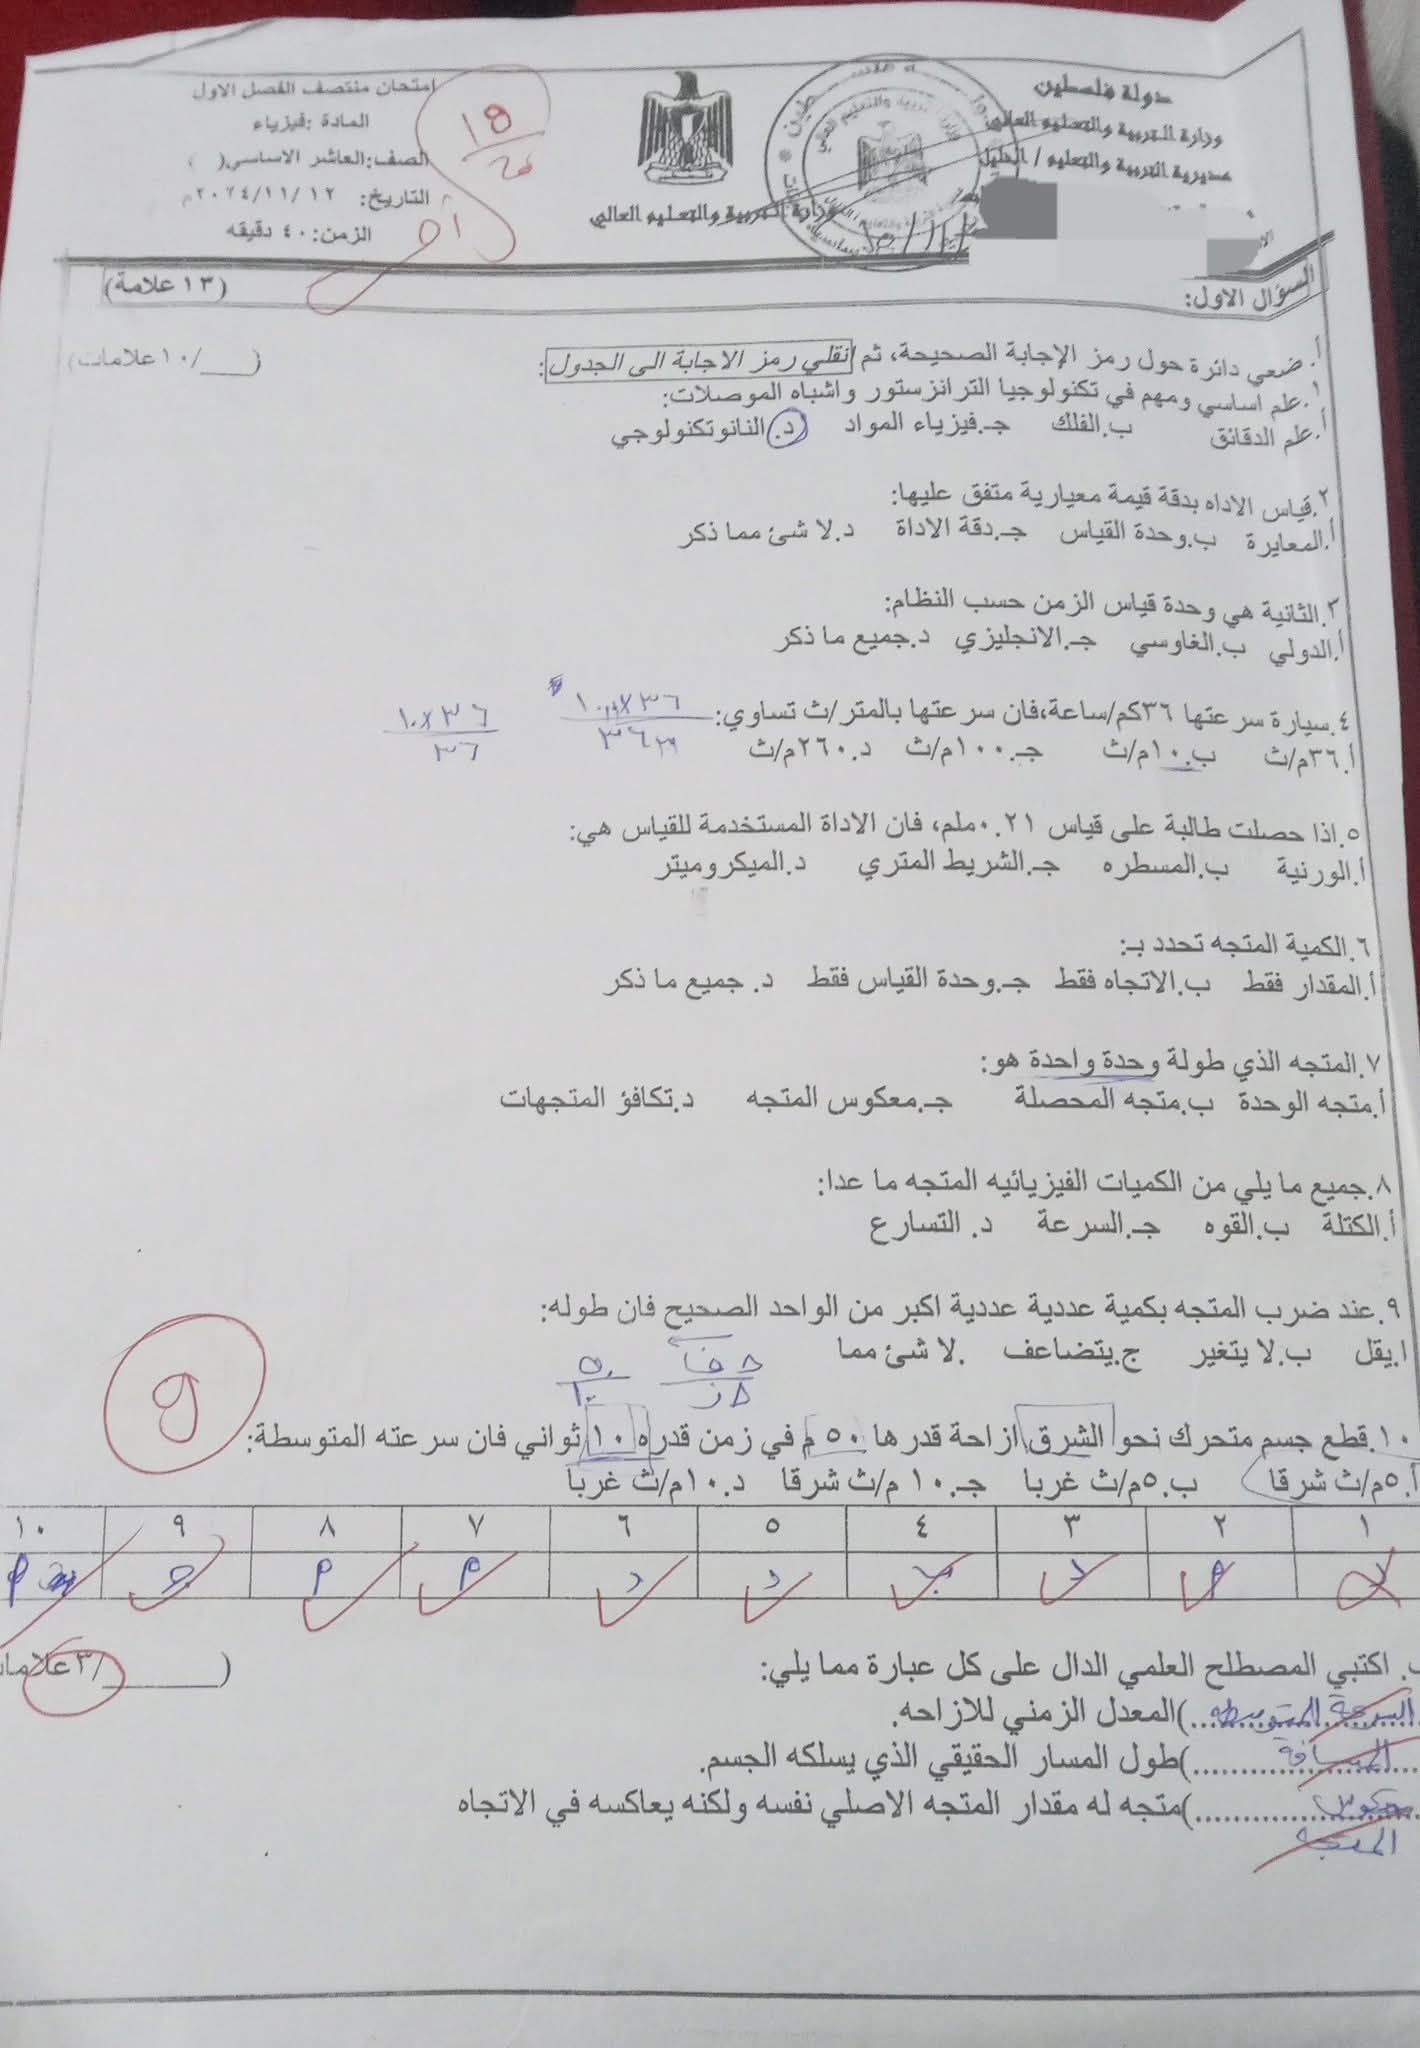 دولة فلسطين
وزارة التربية والتعليم العالي
مديرية التربية والتعليم / الخليل
وزارة التربية والتعليم العالي
امتحان منتصف الفصل الاول
المادة :فيزياء
الصف:العاشر الاساسي( )
التاريخ: ٢٠٢٤/١١/١٢م
الزمن:٤٠ دقيقه
١٨
٢٦
السؤال الاول: (١٣ علامة)
أ. ضعي دائرة حول رمز الإجابة الصحيحة، ثم انقلي رمز الاجابة الى الجدول: (__/١٠علامات)
١.علم اساسي ومهم في تكنولوجيا الترانزستور واشباه الموصلات:
أ.علم الدقائق ب.الفلك جـ.فيزياء المواد د.النانوتكنولوجي
٢.قياس الاداه بدقة قيمة معيارية متفق عليها:
أ.المعايرة ب.وحدة القياس جـ.دقة الاداة د.لا شئ مما ذكر
٣.الثانية هي وحدة قياس الزمن حسب النظام:
أ.الدولي ب.الغاوسي جـ.الانجليزي د.جميع ما ذكر
٤.سيارة سرعتها ٣٦كم/ساعة،فان سرعتها بالمتر/ث تساوي:
١٠×٣٦
٣٦
أ.٣٦م/ث ب.١٠م/ث جـ.١٠٠م/ث د.٢٦٠م/ث
٥.اذا حصلت طالبة على قياس ٠.٢١ملم، فان الاداة المستخدمة للقياس هي:
أ.الورنية ب.المسطره جـ.الشريط المتري د.الميكروميتر
٦.الكمية المتجه تحدد بـ:
أ.المقدار فقط ب.الاتجاه فقط جـ.وحدة القياس فقط د. جميع ما ذكر
٧.المتجه الذي طولة وحدة واحدة هو:
أ.متجه الوحدة ب.متجه المحصلة جـ.معكوس المتجه د.تكافؤ المتجهات
٨.جميع ما يلي من الكميات الفيزيائيه المتجه ما عدا:
أ.الكتلة ب.القوه جـ.السرعة د. التسارع
٩.عند ضرب المتجه بكمية عددية عددية اكبر من الواحد الصحيح فان طوله:
ا.يقل ب.لا يتغير ج.يتضاعف .لا شئ مما
٥٠
١٠
٩
١٠.قطع جسم متحرك نحو الشرق ازاحة قدرها ٥٠م في زمن قدره ١٠ ثواني فان سرعته المتوسطة:
أ.٥م/ث شرقا ب.٥م/ث غربا جـ.١٠ م/ث شرقا د.١٠م/ث غربا
١ ٢ ٣ ٤ ٥ ٦ ٧ ٨ ٩ ١٠
د أ د ب د د أ أ ج أ
ب. اكتبي المصطلح العلمي الدال على كل عبارة مما يلي: (____/٣علامات
السرعة المتوسطه)المعدل الزمني للازاحه.
المسافة)طول المسار الحقيقي الذي يسلكه الجسم.
معكوس)متجه له مقدار المتجه الاصلي نفسه ولكنه يعاكسه في الاتجاه
المتجه